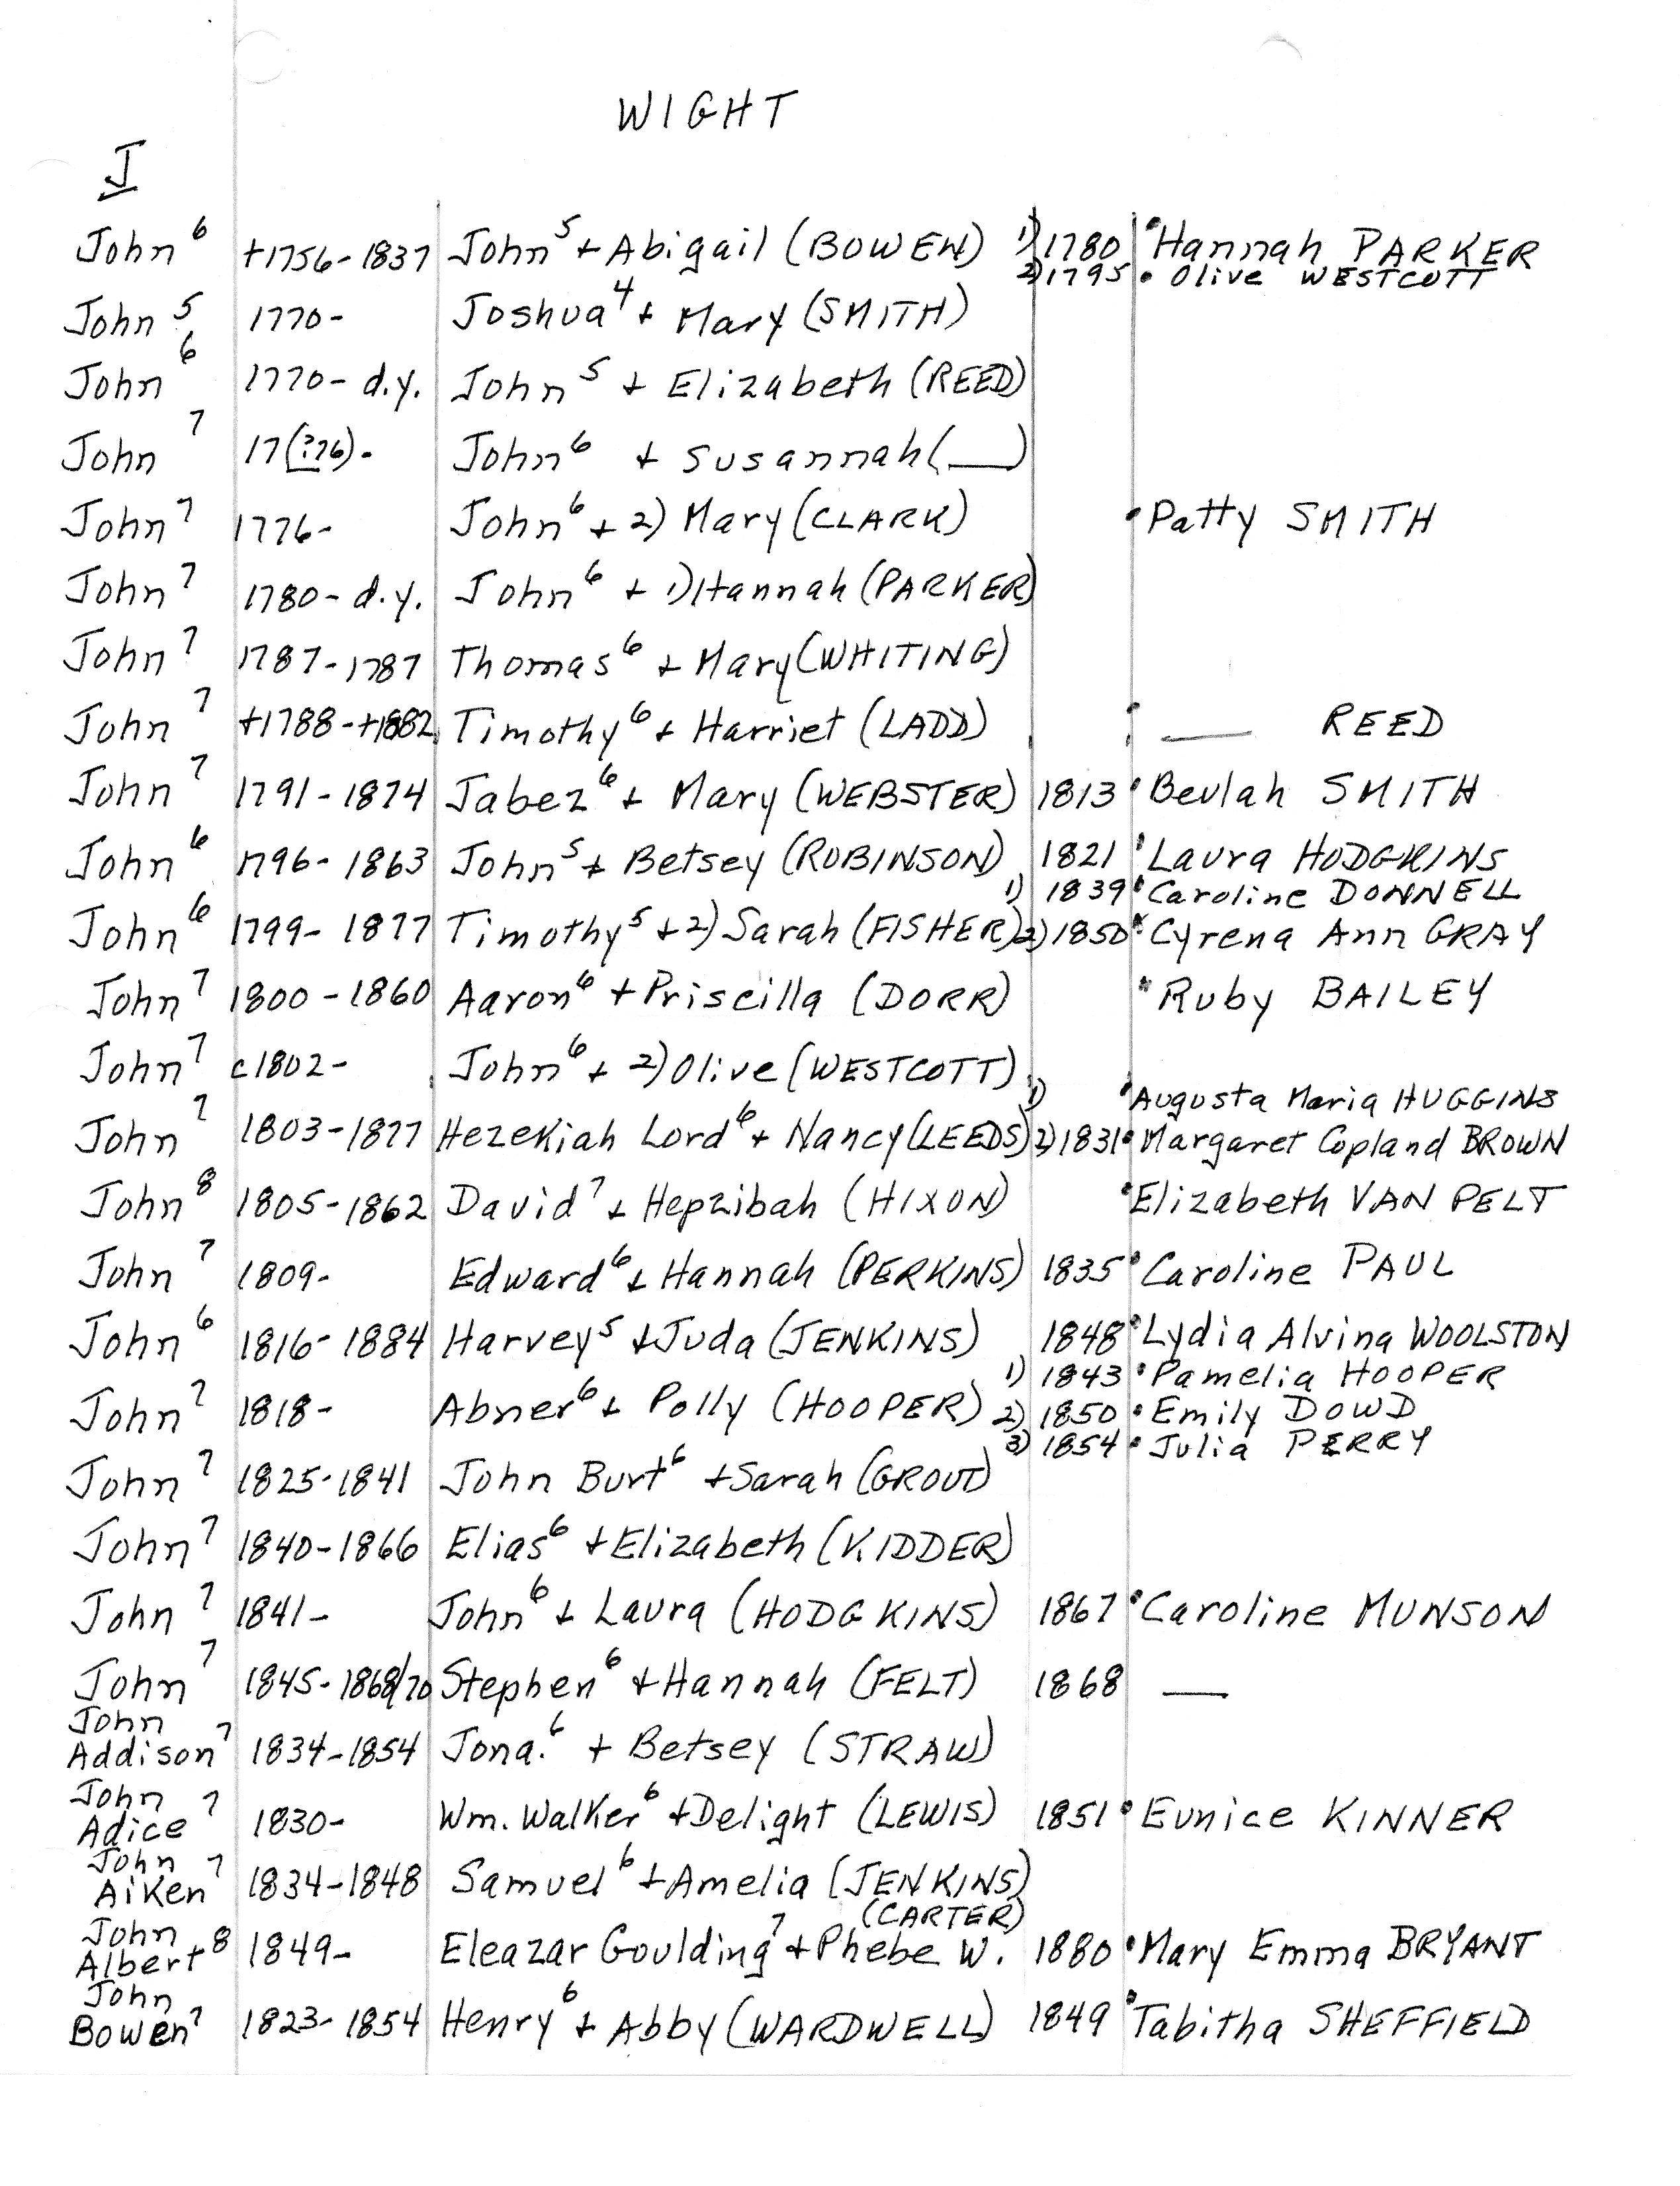 WIGHT
J
John 6 +1756-1837 John 5 + Abigail (BOWEN) 1) 1780 • Hannah PARKER
2) 1795 • Olive WESTCOTT
John 5 1770- Joshua 4 + Mary (SMITH)
John 6 1770- d.y. John 5 + Elizabeth (REED)
John 7 17(?76)- John 6 + Susannah (__)
John 7 1776- John 6 + 2) Mary (CLARK) • Patty SMITH
John 7 1780- d.y. John 6 + 1) Hannah (PARKER)
John 7 1787-1787 Thomas 6 + Mary (WHITING)
John 7 +1788-+1882 Timothy 6 + Harriet (LADD) • __ REED
John 7 1791-1874 Jabez 6 + Mary (WEBSTER) 1813 • Beulah SMITH
John 6 1796-1863 John 5 + Betsey (ROBINSON) 1821 • Laura HODGKINS
1) 1839 • Caroline DONNELL
John 6 1799-1877 Timothy 5 + 2) Sarah (FISHER) 2) 1850 • Cyrena Ann GRAY
John 7 1800-1860 Aaron 6 + Priscilla (DORR) • Ruby BAILEY
John 7 c1802- John 6 + 2) Olive (WESTCOTT)
1) • Augusta Maria HUGGINS
John 7 1803-1877 Hezekiah Lord 6 + Nancy (LEEDS) 2) 1831 • Margaret Copland BROWN
John 8 1805-1862 David 7 + Hepzibah (HIXON) • Elizabeth VAN PELT
John 7 1809- Edward 6 + Hannah (PERKINS) 1835 • Caroline PAUL
John 6 1816-1884 Harvey 5 + Juda (JENKINS) 1848 • Lydia Alvina WOOLSTON
1) 1843 • Pamelia HOOPER
John 7 1818- Abner 6 + Polly (HOOPER) 2) 1850 • Emily DOWD
3) 1854 • Julia PERRY
John 7 1825-1841 John Burt 6 + Sarah (GROUT)
John 7 1840-1866 Elias 6 + Elizabeth (KIDDER)
John 7 1841- John 6 + Laura (HODGKINS) 1867 • Caroline MUNSON
John 7 1845-1868/70 Stephen 6 + Hannah (FELT) 1868 __
John
Addison 7 1834-1854 Jona. 6 + Betsey (STRAW)
John
Adice 7 1830- Wm. Walker 6 + Delight (LEWIS) 1851 • Eunice KINNER
John
Aiken 7 1834-1848 Samuel 6 + Amelia (JENKINS)
John (CARTER)
Albert 8 1849- Eleazar Goulding 7 + Phebe W. 1880 • Mary Emma BRYANT
John
Bowen 7 1823-1854 Henry 6 + Abby (WARDWELL) 1849 • Tabitha SHEFFIELD